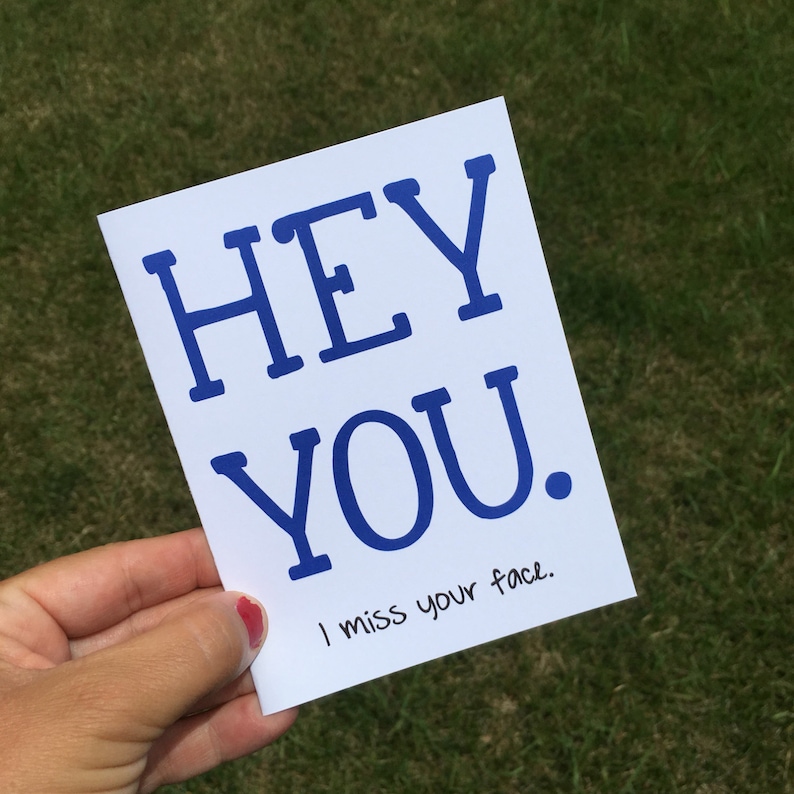 HEY
YOU.
I miss your face.